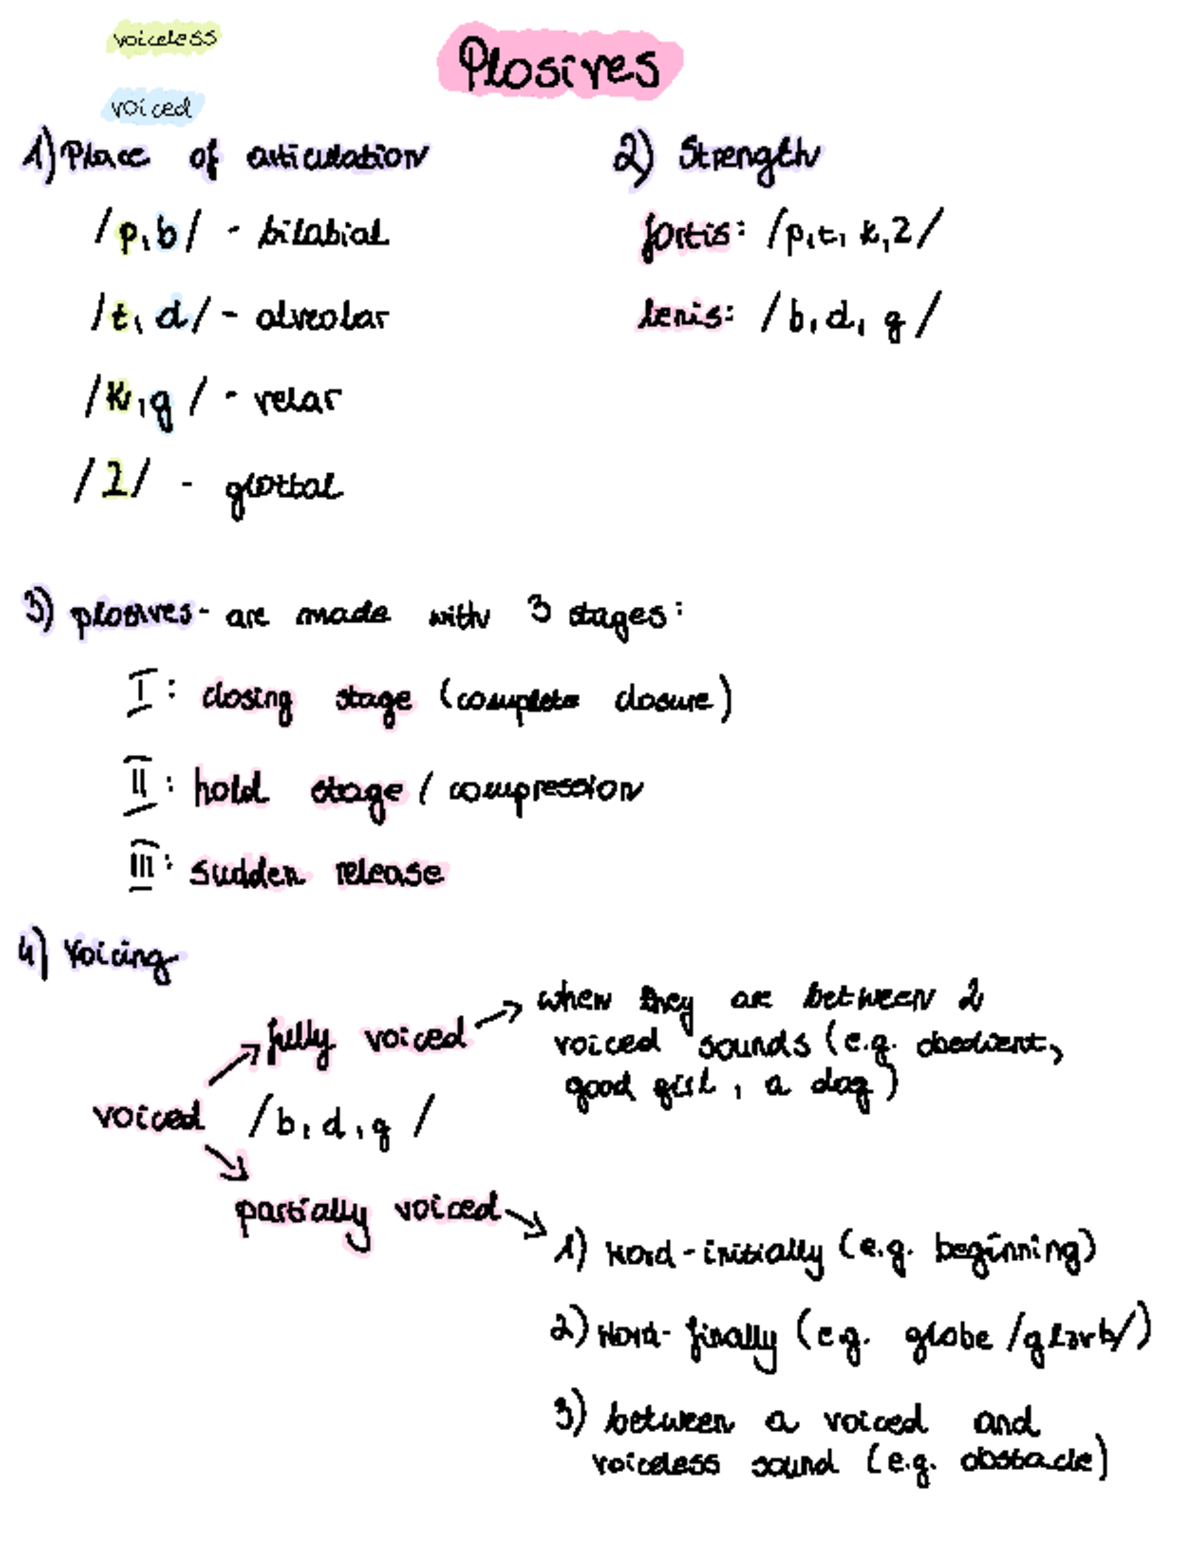 voiceless
Plosives
voiced
1) Place of articulation
/p, b/ - bilabial
/t, d/ - alveolar
/k, g/ - velar
/ʔ/ - glottal
2) Strength
fortis: /p, t, k, ʔ/
lenis: /b, d, g/
3) plosives - are made with 3 stages:
I: closing stage (complete closure)
II: hold stage / compression
III: sudden release
4) Voicing
voiced /b, d, g/
fully voiced → when they are between 2
voiced sounds (e.g. obedient,
good girl, a dog)
partially voiced →
1) Word-initially (e.g. beginning)
2) Word-finally (e.g. globe /gləʊb/)
3) between a voiced and
voiceless sound (e.g. obstacle)